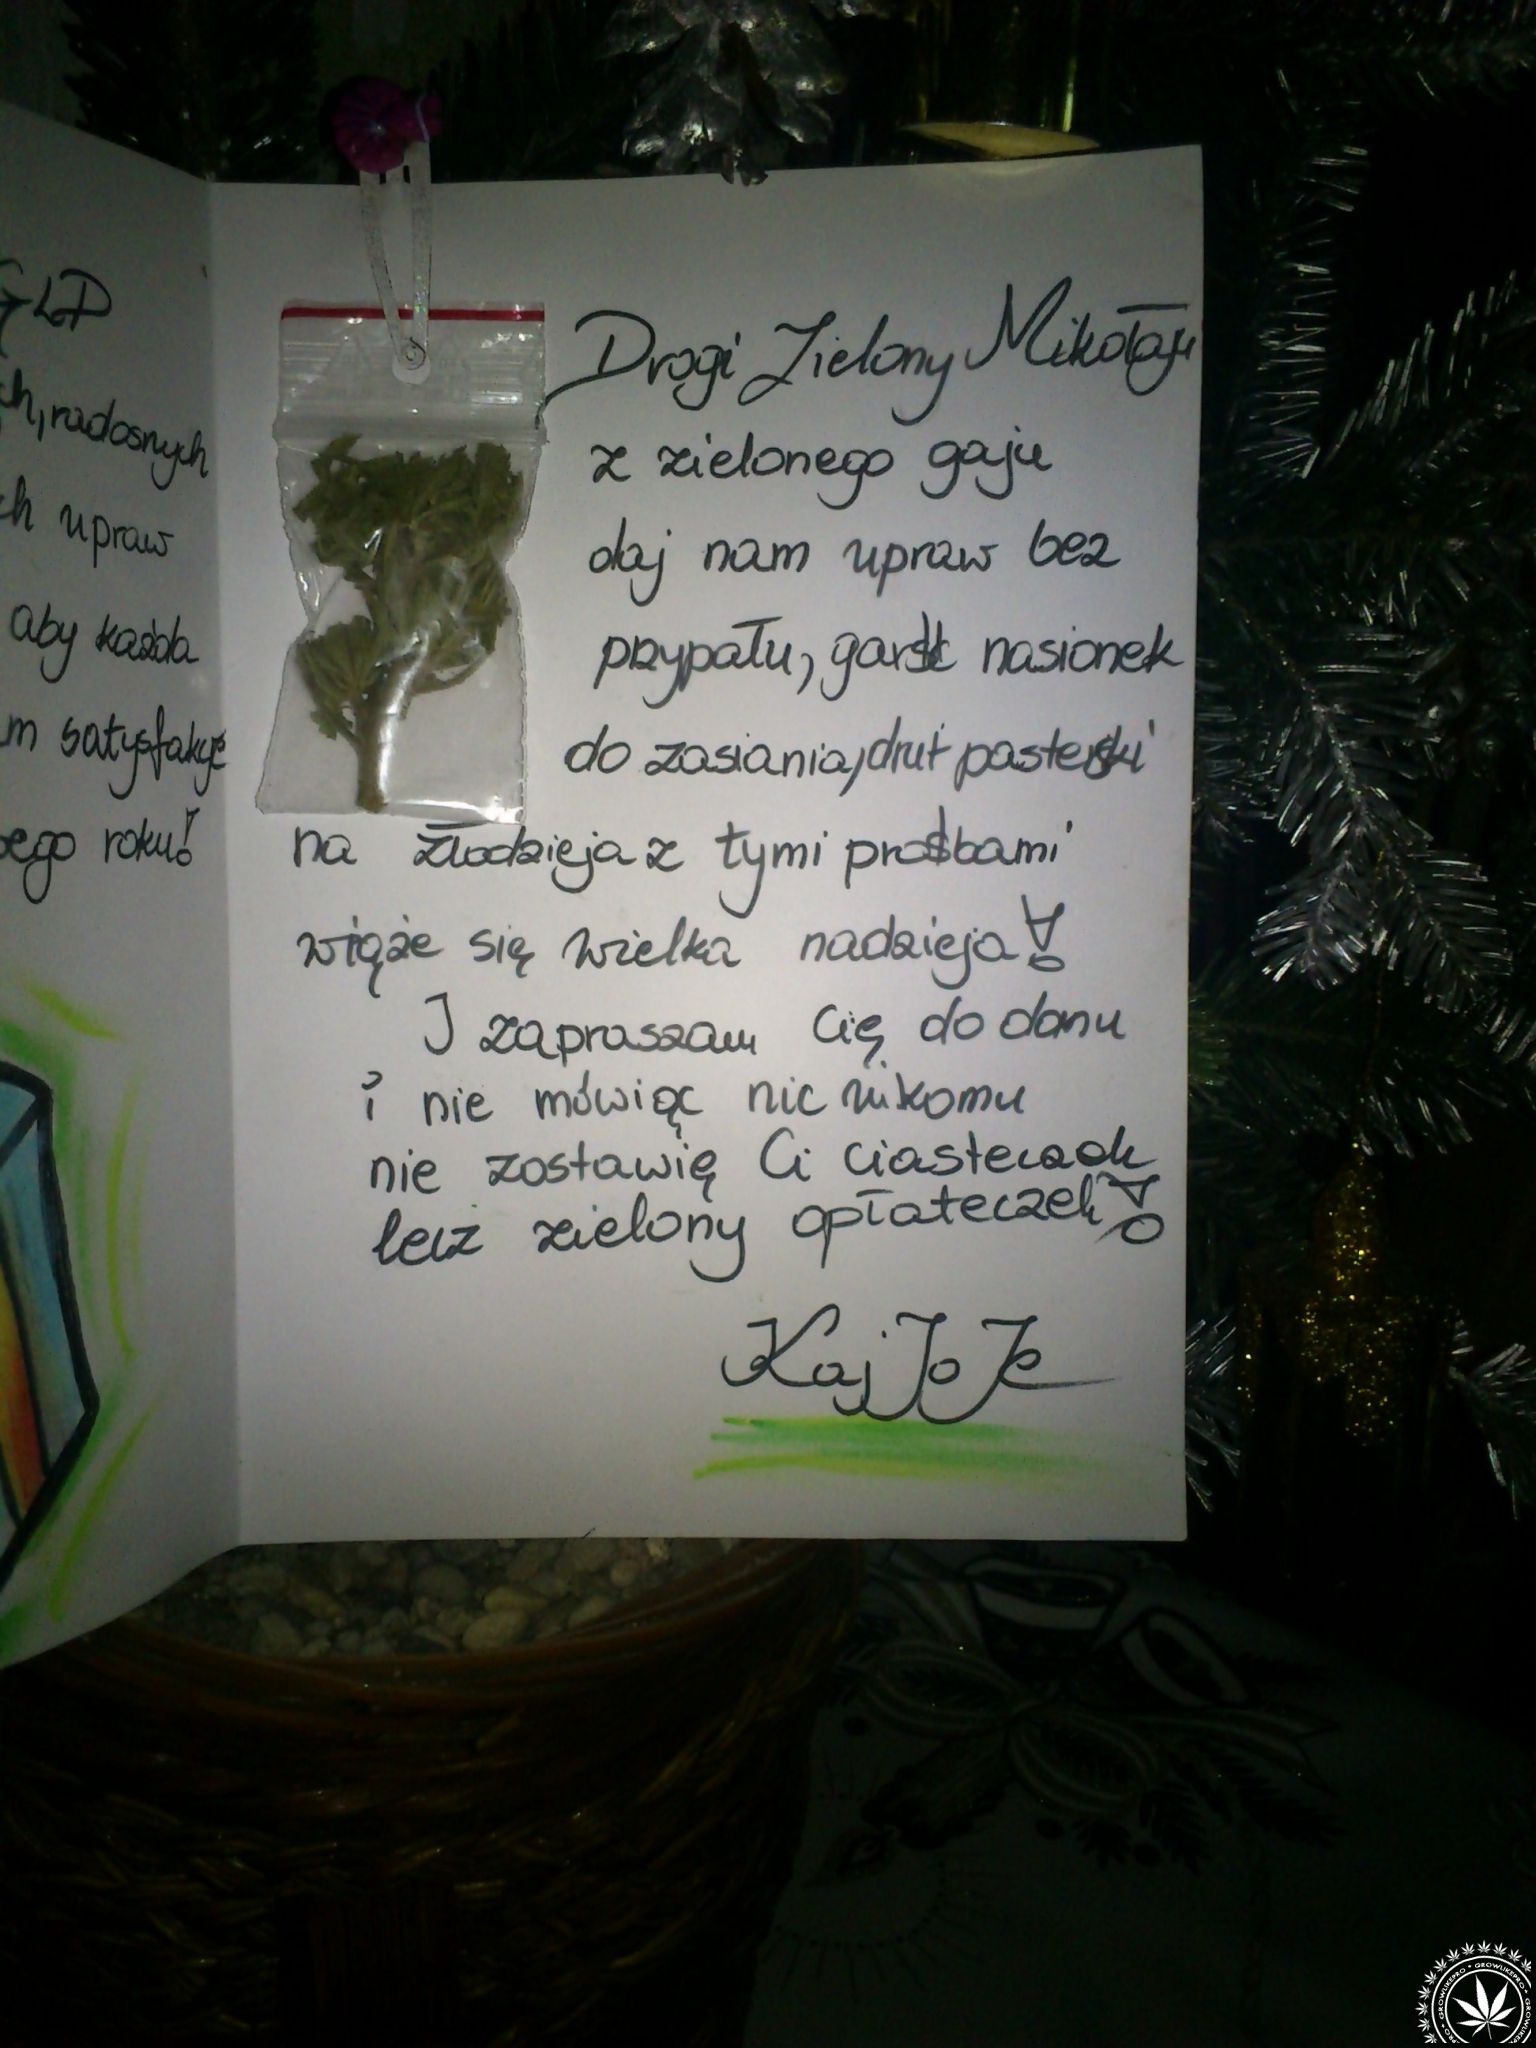 GLD
radosnych
upraw
aby każda
satysfakcję
roku!
Drogi Zielony Mikołaju
z zielonego gaju
daj nam upraw bez
przypału, garść nasionek
do zasiania, drut pasterski
na złodzieja z tymi prośbami
wiąże się wielka nadzieja!
I zapraszam Cię do domu
i nie mówiąc nic nikomu
nie zostawię Ci ciasteczek
lecz zielony opłateczek!
KajJoJe
GROWLIKEPRO